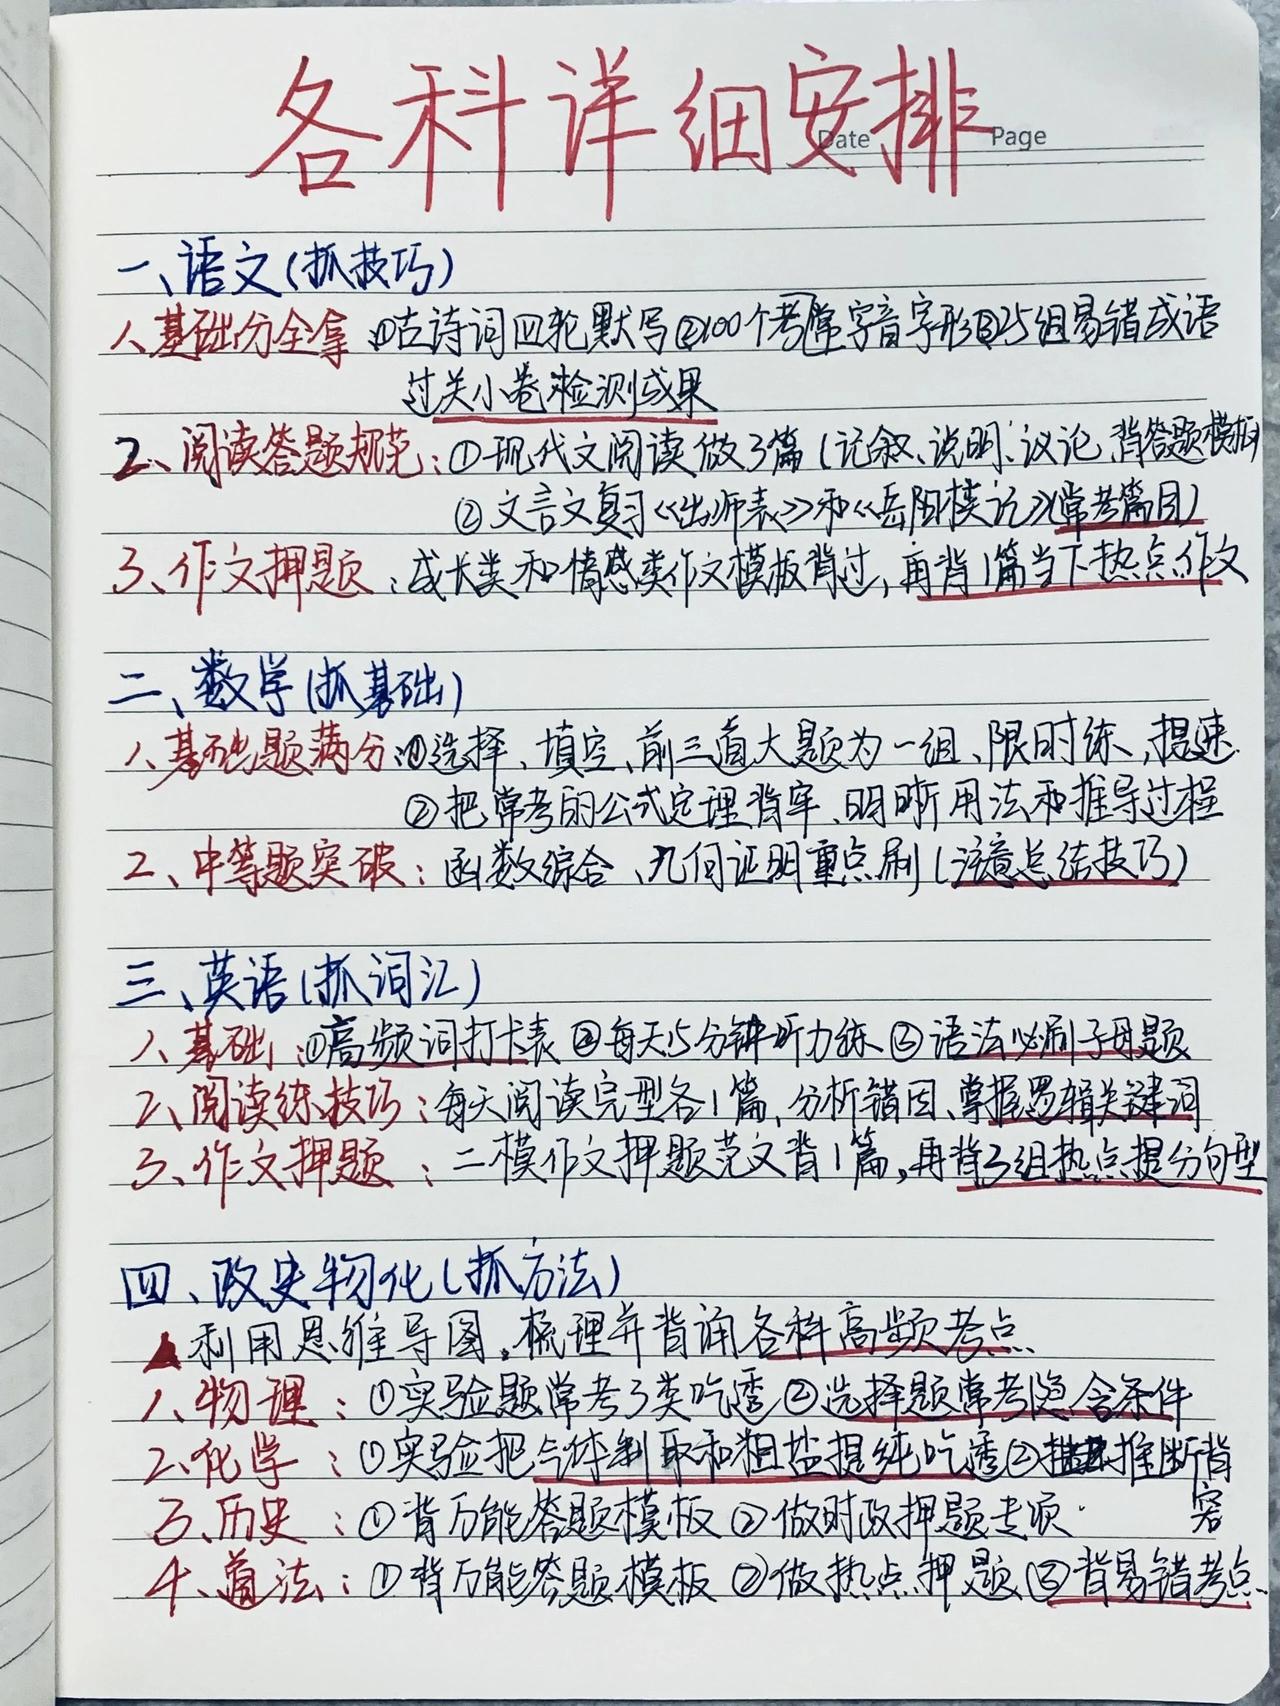 各科详细安排
Date Page
一、语文(抓技巧)
1、基础分全拿:①古诗词四轮默写②100个考常字音字形③25组易错成语
过关小卷检测成果
2、阅读答题规范:①现代文阅读做3篇(记叙、说明、议论,背答题模板)
②文言文复习《出师表》和《岳阳楼记》(常考篇目)
3、作文押题:成长类和情感类作文模板背过,再背1篇当下热点作文
二、数学(抓基础)
1、基础题满分:①选择、填空、前三道大题为一组、限时练,提速.
②把常考的公式定理背牢、明晰用法和推导过程
2、中等题突破:函数综合、几何证明重点刷(注意总结技巧)
三、英语(抓词汇)
1、基础:①高频词打卡表②每天15分钟听力练③语法必刷子母题
2、阅读练技巧:每天阅读完型各1篇,分析错因、掌握逻辑关键词
3、作文押题:二模作文押题范文背1篇,再背3组热点提分句型
四、政史物化(抓方法)
▲利用思维导图,梳理并背诵各科高频考点.
1、物理:①实验题常考3类吃透②选择题常考隐含条件
2、化学:①实验把气体制取和粗盐提纯吃透②推断背
3、历史:①背万能答题模板②做时政押题专项.
4、道法:①背万能答题模板②做热点押题③背易错考点.